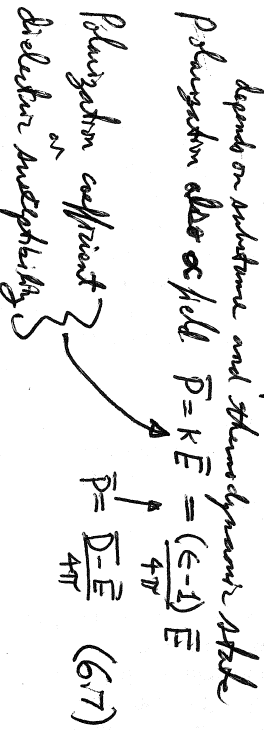 depends on substance and thermodynamic state
Polarization also ∝ field P̄ = κĒ = (ϵ-1)/4π Ē
Polarization coefficient
or
dielectric susceptibility
P̄ = (D̄ - Ē)/4π (6.7)